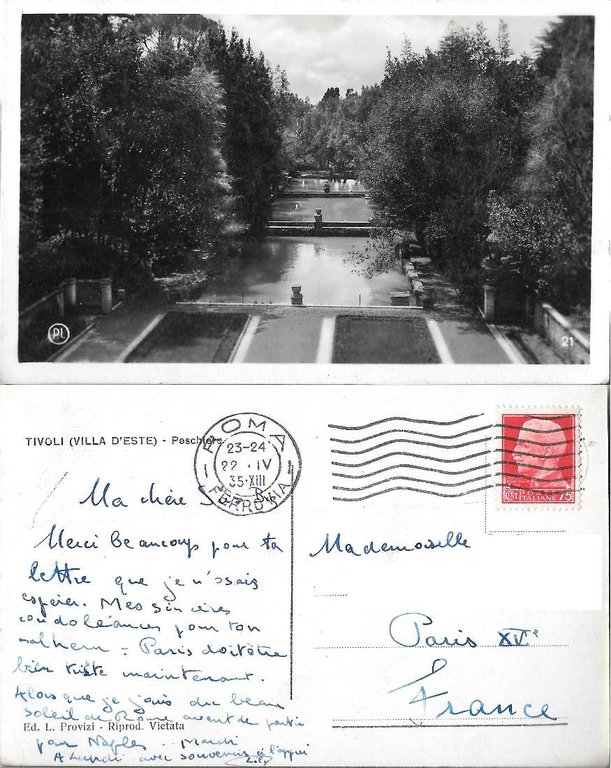 PL
21
TIVOLI (VILLA D'ESTE) - Peschiere
ROMA
23-24
22 · IV
35·XIII
FERROVIA
POSTE ITALIANE 75
Ma chère
Merci beaucoup pour ta
lettre que je n'osais
espérer. Mes sincères
condoléances pour ton
malheur = Paris doit être
bien triste maintenant.
Alors que je jouis du beau
soleil de Rome avant de partir
Ed. L. Provizi - Riprod. Vietata
pour Naples .. Mardi
A Lundi avec souvenirs à l'appui
Mademoiselle
Paris XVe
France